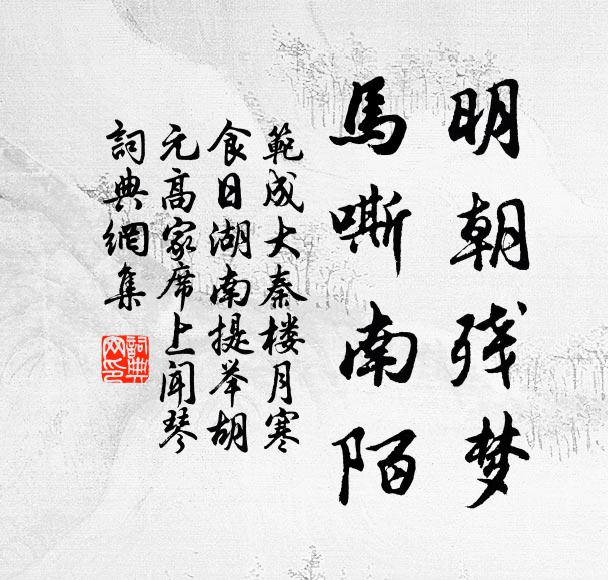 明朝残梦
馬嘶南陌
範成大秦楼月寒
食日湖南提举胡
元高家席上闻琴
詞典網集
詞典
网印